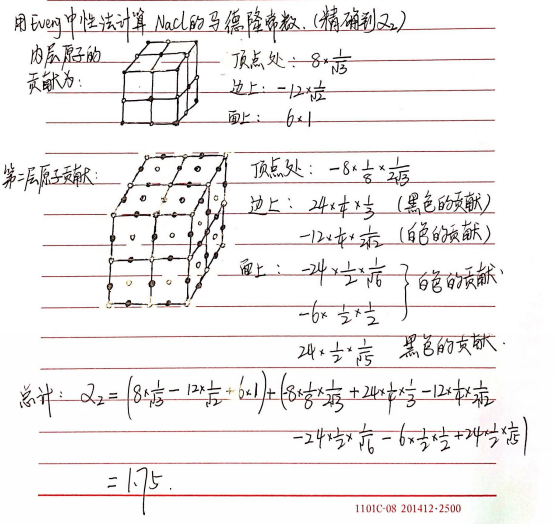 用Evenj中性法计算 Nacl的马德隆常数.(精确到α₂)
内层原子的
贡献为:
顶点处: 8×1/√3
边上: -12×1/√2
面上: 6×1
第二层原子贡献:
顶点处: -8×1/8×1/2√3
边上: 24×1/4×1/3 (黑色的贡献)
-12×1/4×1/2√2 (白色的贡献)
面上: -24×1/2×1/√6
-6×1/2×1/2
} 白色的贡献.
24×1/2×1/√5 黑色的贡献.
总计: α₂=(8×1/√3-12×1/√2+6×1)+(-8×1/8×1/2√3+24×1/4×1/3-12×1/4×1/2√2
-24×1/2×1/√6-6×1/2×1/2+24×1/2×1/√5)
=1.75.
1101C-08 201412·2500